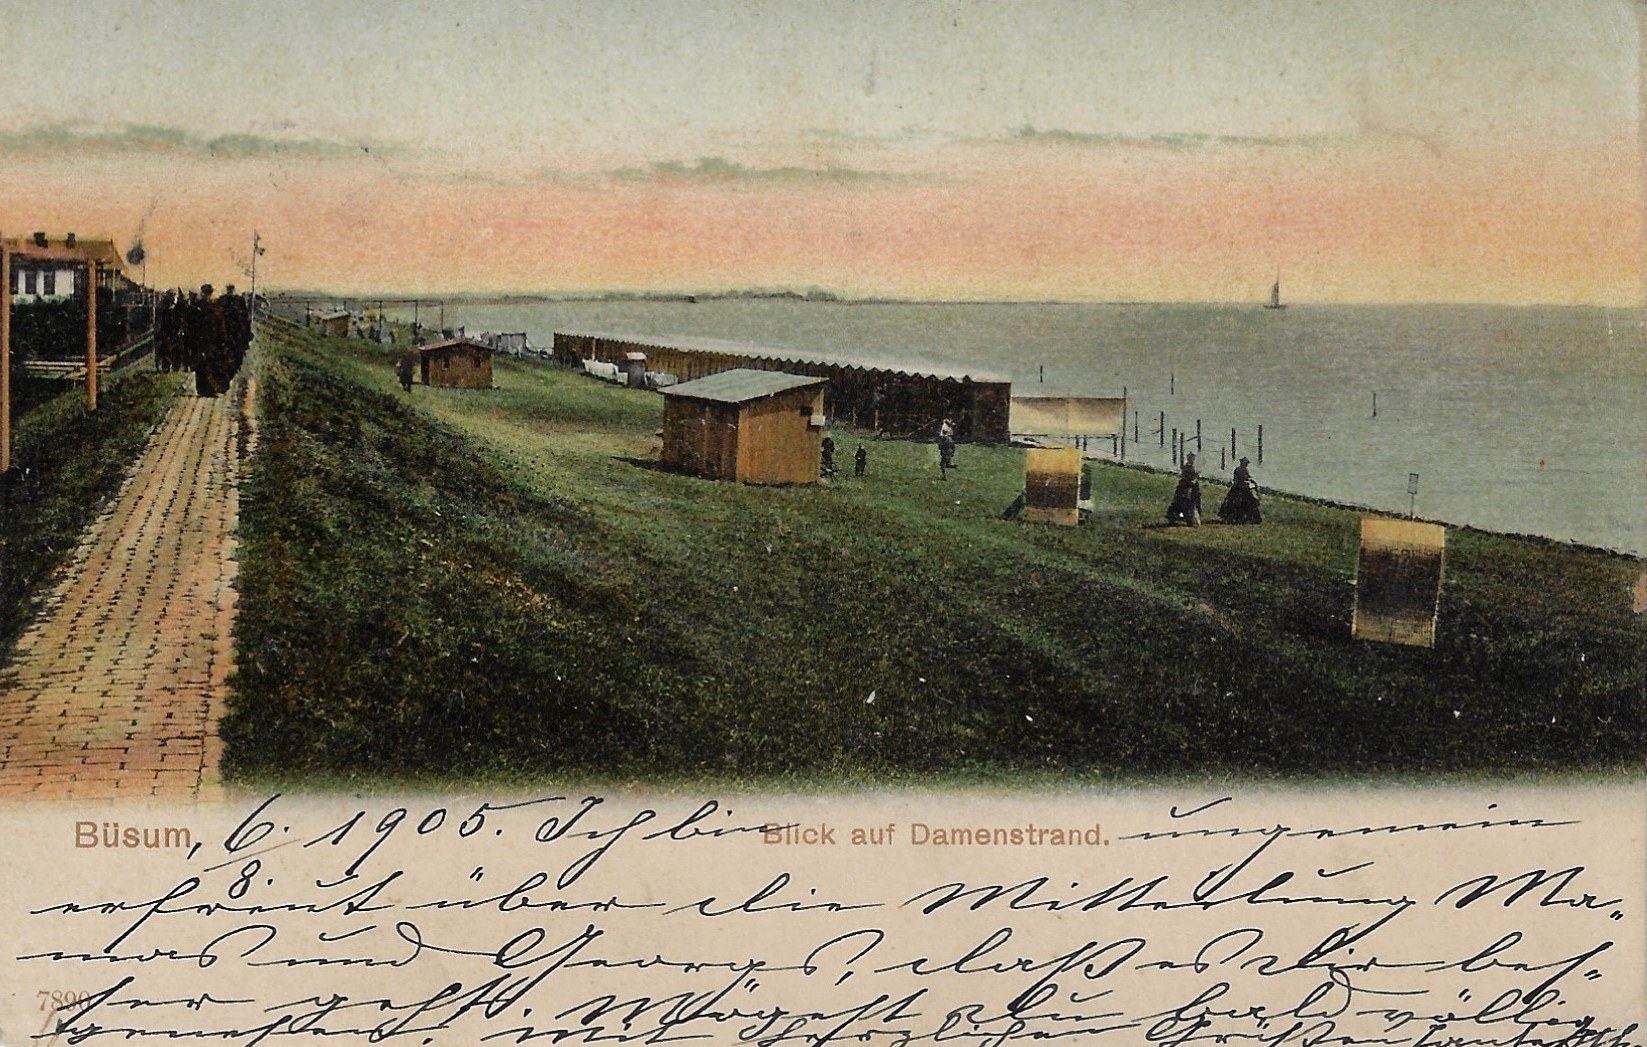 Büsum, 6. 1905. Ich bin Blick auf Damenstrand. ungemein
8.
erfreut über die Mitteilung Ma„
mas und Georgs, daß es Dir bes„
7890 ser geht. Mögest Du bald völlig
genesen. Mit herzlichen Grüßen Tante